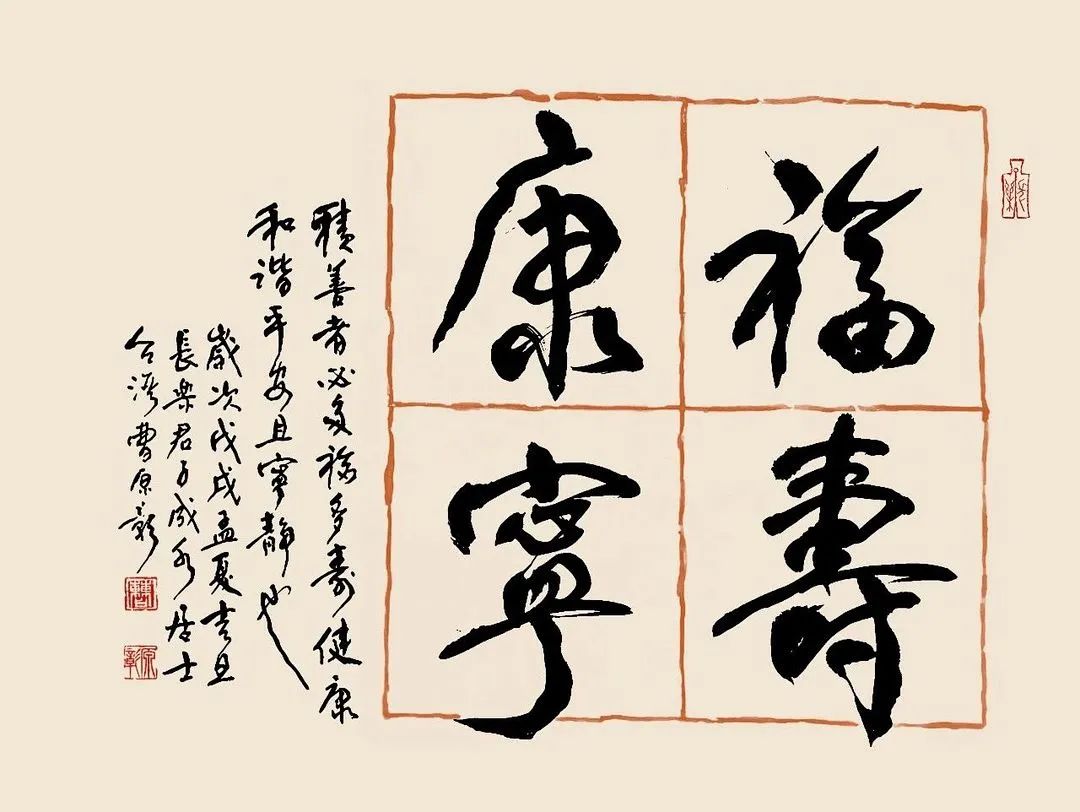 福壽
康寧
積善者必多福多壽健康
和谐平安且寧靜也
歲次戊戌孟夏吉旦
長樂君子成居士
台湾曹原彰
原彰